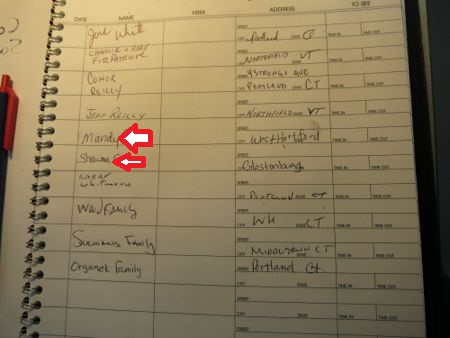 DATE NAME FIRM ADDRESS TO SEE
STREET
June White
CITY Portland Ct STATE TIME IN TIME OUT
CHARLIE + RORY
FITZPATRICK
CITY NORTHFIELD STATE VT TIME IN TIME OUT
CONOR
REILLY
4 STRONGS AVE
CITY PORTLAND STATE CT TIME IN TIME OUT
JEFF REILLY
CITY NORTHFIELD STATE VT TIME IN TIME OUT
STREET
Mandy
CITY West Hartford STATE TIME IN TIME OUT
STREET
Shawna
CITY Glastonbury STATE TIME IN TIME OUT
STREET
CITY CT STATE TIME IN TIME OUT
STREET
Ward Family
CITY WH STATE CT TIME IN TIME OUT
STREET
Summers Family
CITY MIDDLETOWN CT STATE TIME IN TIME OUT
Organek Family
CITY Portland Ct. STATE TIME IN TIME OUT
STREET
CITY STATE TIME IN TIME OUT
STREET
CITY STATE TIME IN TIME OUT